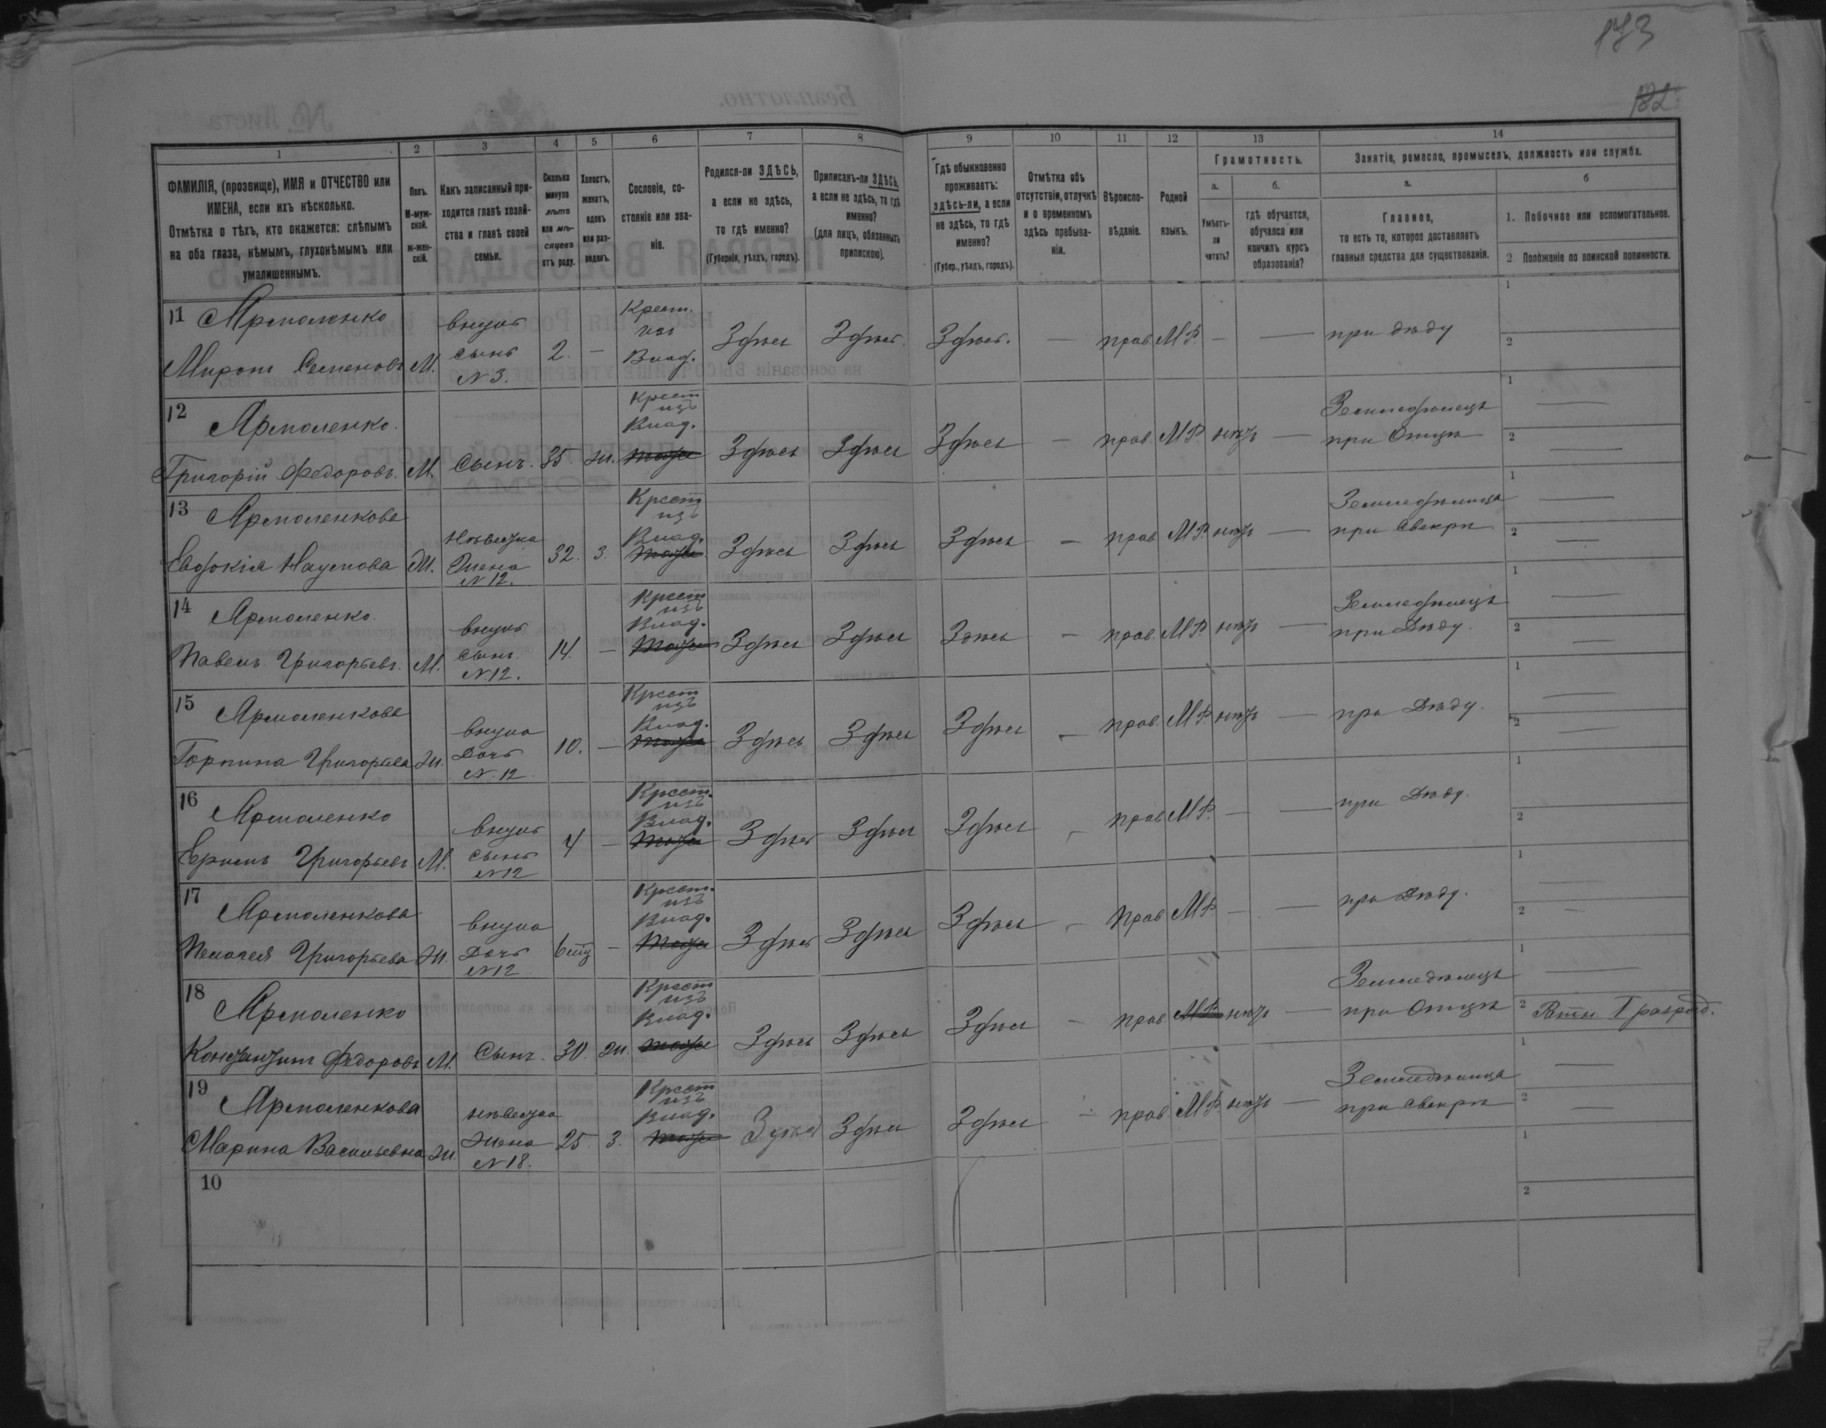 173
182
1 2 3 4 5 6 7 8 9 10 11 12 13 14
ФАМИЛІЯ, (прозвище), ИМЯ и ОТЧЕСТВО или ИМЕНА, если ихъ нѣсколько.
Отмѣтка о тѣхъ, кто окажется: слѣпымъ на оба глаза, нѣмымъ, глухонѣмымъ или умалишеннымъ.
Полъ.
М-муж-
ской.
Ж-жен-
скій.
Какъ записанный при-
ходится главѣ хозяй-
ства и главѣ своей
семьи.
Сколько
минуло
лѣтъ
или мѣ-
сяцевъ
отъ роду.
Холостъ,
женатъ,
вдовъ
или раз-
веденъ.
Сословіе, со-
стояніе или зва-
ніе.
Родился-ли ЗДѢСЬ,
а если не здѣсь,
то гдѣ именно?
(Губернія, уѣздъ, городъ).
Приписанъ-ли ЗДѢСЬ,
а если не здѣсь, то гдѣ
именно?
(для лицъ, обязанныхъ
припискою).
Гдѣ обыкновенно
проживаетъ:
здѣсь-ли, а если
не здѣсь, то гдѣ
именно?
(Губер., уѣздъ, городъ).
Отмѣтка объ
отсутствіи, отлучкѣ
и о временномъ
здѣсь пребыва-
ніи.
Вѣроиспо-
вѣданіе.
Родной
языкъ.
Грамотность.
а.
Умѣетъ-
ли
читать?
б.
гдѣ обучается,
обучался или
кончилъ курсъ
образованія?
Занятіе, ремесло, промыселъ, должность или служба.
а.
Главное,
то есть то, которое доставляетъ
главныя средства для существованія.
б
1. Побочное или вспомогательное.
2. Положеніе по воинской повинности.
11 Ярмоленко
Миронъ Семеновъ М. внукъ сынъ N 3. 2. — Крест. изъ Влад. Здѣсь Здѣсь Здѣсь. — прав М.Р. — — при дѣду
1
2
12 Ярмоленко.
Григорій Федоровъ. М. Сынъ. 35 ж. Крест изъ Влад. тоже Здѣсь Здѣсь Здѣсь — прав М Р нѣтъ — Земледѣлецъ при Отцѣ
1 —
2 —
13 Ярмоленкова
Евдокія Наумова Ж. Невѣстка Жена N 12. 32. з. Крест изъ Влад. тоже Здѣсь Здѣсь Здѣсь — прав М Р нѣтъ — Земледѣлица при Свекрѣ
1 —
2 —
14 Ярмоленко.
Павелъ Григорьевъ. М. внукъ сынъ N 12. 14. — Крест изъ Влад. тоже Здѣсь Здѣсь Здѣсь — прав. М Р нѣтъ — Земледѣлецъ при Дѣду.
1 —
2 —
15 Ярмоленкова
Горпина Григорьева ж. внука Дочь N. 12 10. — Крест изъ Влад. тоже Здѣсь Здѣсь Здѣсь — прав. М Р. нѣтъ — при Дѣду.
1 —
2 —
16 Ярмоленко
Григорьевъ М. внукъ сынъ N 12 4 — Крест. изъ Влад. тоже Здѣсь Здѣсь Здѣсь — прав М Р. — — при Дѣду.
1
2
17 Ярмоленкова
Пелагея Григорьева ж. внука Дочь N 12 — Крест. изъ Влад. тоже Здѣсь Здѣсь Здѣсь — прав М Р. — — при Дѣду.
1 —
2 —
18 Ярмоленко
Константинъ Федоровъ М. Сынъ. 30 ж. Крест изъ Влад. тоже Здѣсь Здѣсь Здѣсь — прав М Р нѣтъ — Земледѣлецъ при Отцѣ
1 —
2 Ратн. I разряд.
19 Ярмоленкова
Марина Васильевна ж. невѣстка Жена N 18. 25 з. Крест изъ Влад. тоже Здѣсь Здѣсь Здѣсь — прав М Р. нѣтъ — Земледѣлица при Свекрѣ
1 —
2 —
10
1
2